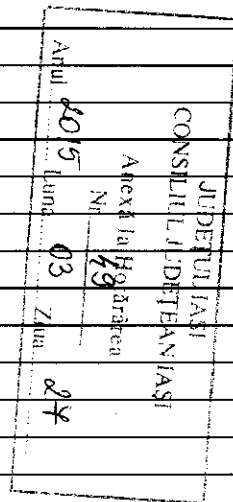 JUDEŢUL IAŞI
CONSILIUL JUDEŢEAN IAŞI
Anexă la Hotărârea
Nr. 49
Anul 2015 Luna 03 Ziua 24